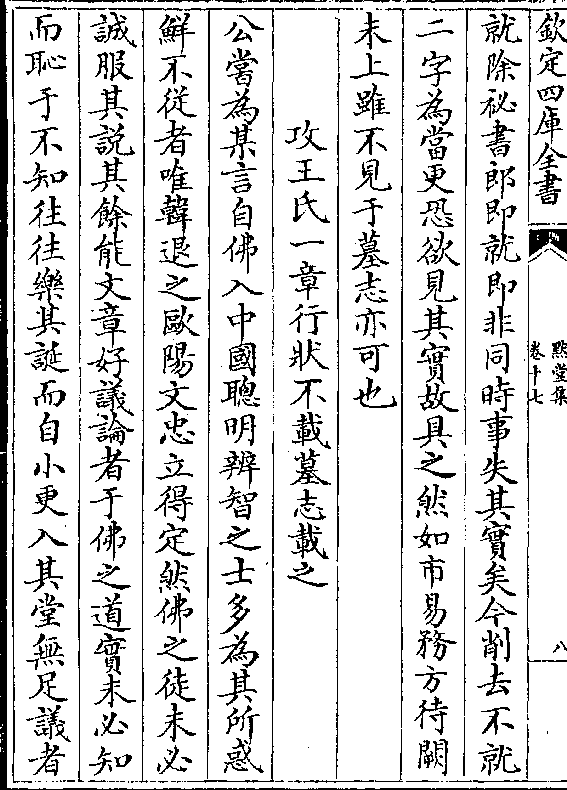 欽定四庫全書
默堂集
卷十七
八
就除秘書郎即就即非同時事失其實矣今削去不就
二字為當更恐欲見其實故具之然如市易務方待闕
未上雖不見于墓志亦可也
攻王氏一章行狀不載墓志載之
公嘗為某言自佛入中國聰明辨智之士多為其所惑
鮮不從者唯韓退之歐陽文忠立得定然佛之徒未必
誠服其說其餘能文章好議論者于佛之道實未必知
而恥于不知往往樂其誕而自小更入其堂無足議者